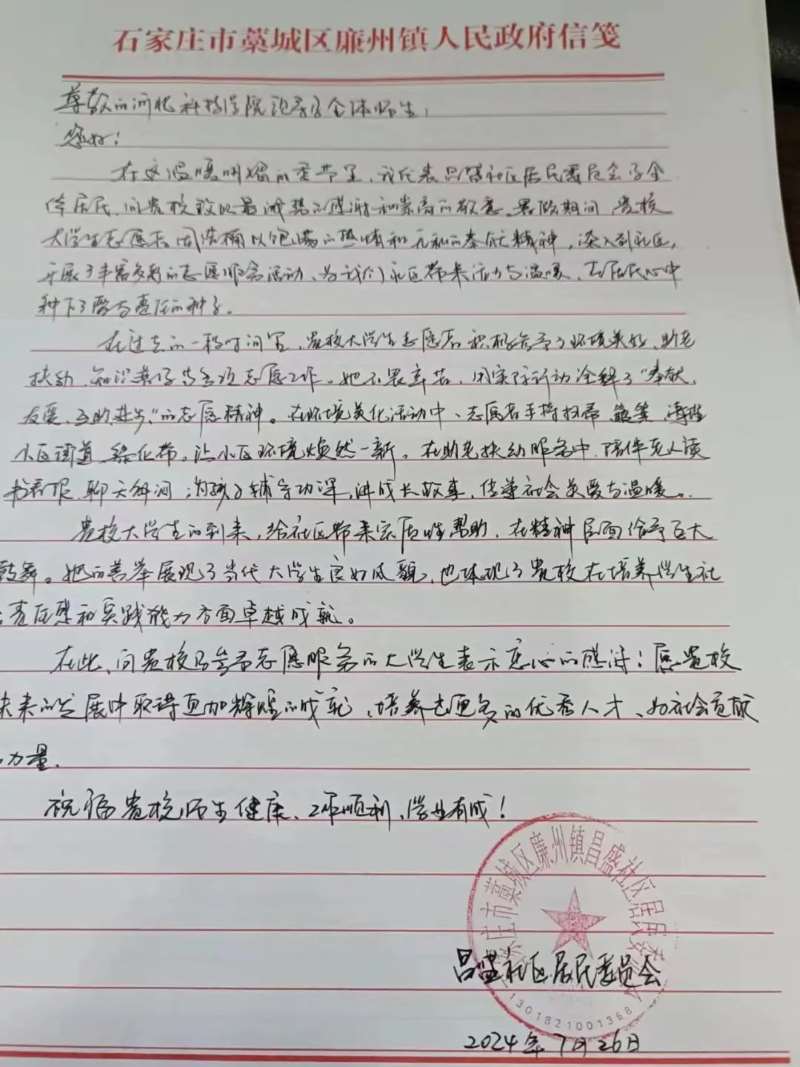 石家庄市藁城区廉州镇人民政府信笺
尊敬的河北科技学院领导及全体师生：
您好！
在这温暖明媚的季节里，我代表昌盛社区居民委员会及全
体居民，向贵校致以最诚挚的感谢和崇高的敬意。暑假期间，贵校
大学生志愿者团体满以饱满的热情和无私的奉献精神，深入到社区，
开展了丰富多彩的志愿服务活动，为我们社区带来活力与温暖，在居民心中
种下了爱与责任的种子。
在过去的一段时间里，贵校大学生志愿者积极参与了环境美化，助老
扶幼，知识普及等各项志愿工作。她不畏辛苦，用实际行动诠释了“奉献，
友爱，互助，进步，”的志愿精神。在环境美化活动中、志愿者手持扫帚、簸箕、清理
小区街道、绿化带，让小区环境焕然一新。在助老扶幼服务中，陪伴老人读
书看报、聊天解闷；为孩子辅导功课，讲成长故事，传递社会关爱与温暖。
贵校大学生的到来，给社区带来实质性帮助，在精神层面给予巨大
鼓舞。她的善举展现了当代大学生良好风貌，也体现了贵校在培养学生社
会责任感和实践能力方面卓越成就。
在此，向贵校及参与志愿服务的大学生表示衷心的感谢！愿贵校
未来的发展中取得更加辉煌的成就，培养出更多的优秀人才、为社会贡献
力量。
祝福贵校师生健康、工作顺利、学业有成！
石家庄市藁城区廉州镇昌盛社区居民委员会
昌盛社区居民委员会
1301821001368
2024年7月26日